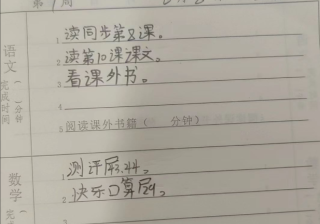 第1周
语文
完成时间(一)分钟
1.读同步第8课。
2.读第10课课文。
3.看课外书。
4.
5.阅读课外书籍( 分钟)
数学
完
1.测评P3.44。
2.快乐口算P9。